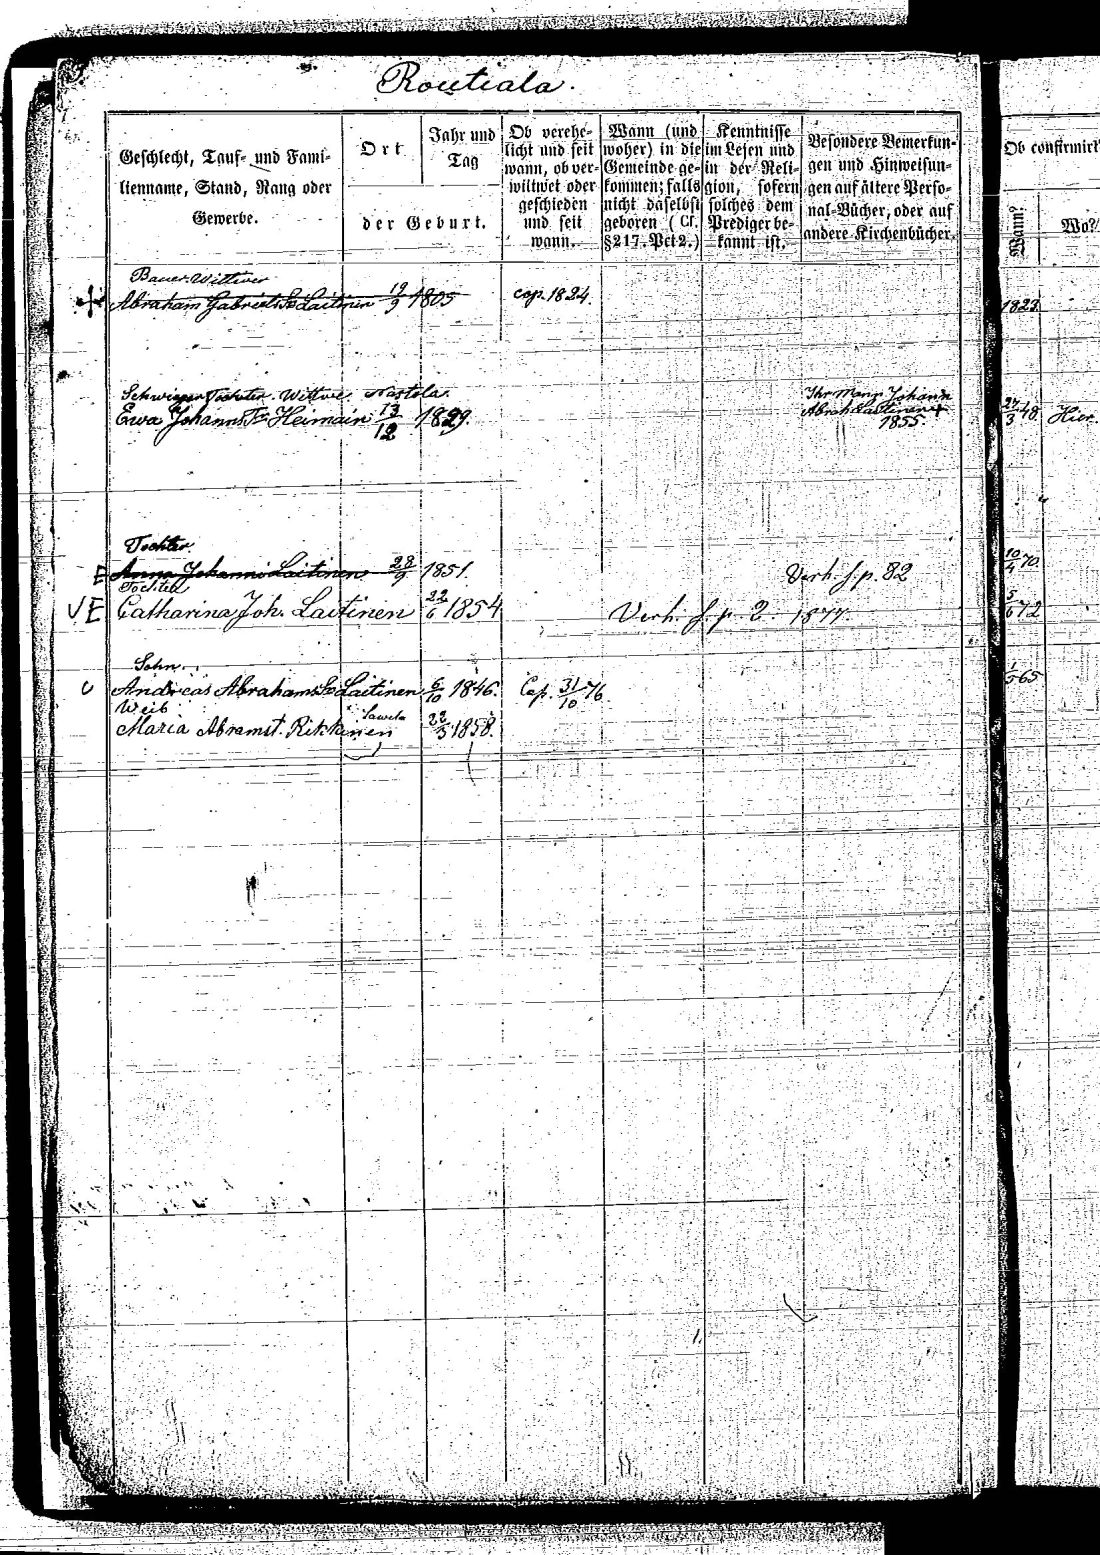 Routiala.
Geschlecht, Tauf- und Fami-
lienname, Stand, Rang oder
Gewerbe.
Ort
Jahr und
Tag
der Geburt.
Ob verehe-
licht und seit
wann, ob ver-
wittwet oder
geschieden
und seit
wann.
Wann (und
woher) in die
Gemeinde ge-
kommen; falls
nicht daselbst
geboren (Cf.
§217. Pct 2.)
Kenntnisse
im Lesen und
in der Reli-
gion, sofern
solches dem
Prediger be-
kannt ist.
Besondere Bemerkun-
gen und Hinweisun-
gen auf ältere Perso-
nal-Bücher, oder auf
andere Kirchenbücher.
Ob confirmirt
Wann?
Wo?
Bauer Wittwer
Abraham Gabriels So Laitinen 19/9 1805 cop. 1824. 1823.
Schwieger Tochter. Wittwe Nastola. Ihr Mann Johann
Ewa Johanns To Heimain 13/12 1829. Abrah Laitinen + 24/3 48 Hier.
1855.
Tochter.
E Anna Johanns Laitinen 28/9 1851. Verh. s. p. 82 10/4 70.
Tochter
V E Catharina Joh. Laitinen 22/6 1854 Verh. s. p. 2. 1877. 5/6 72
Sohn.
Andreas Abrahams So Laitinen 6/10 1846. Cop. 31/10 76 1/5 65
Weib
Maria Abramst. Rikkinen 22/3 1858.